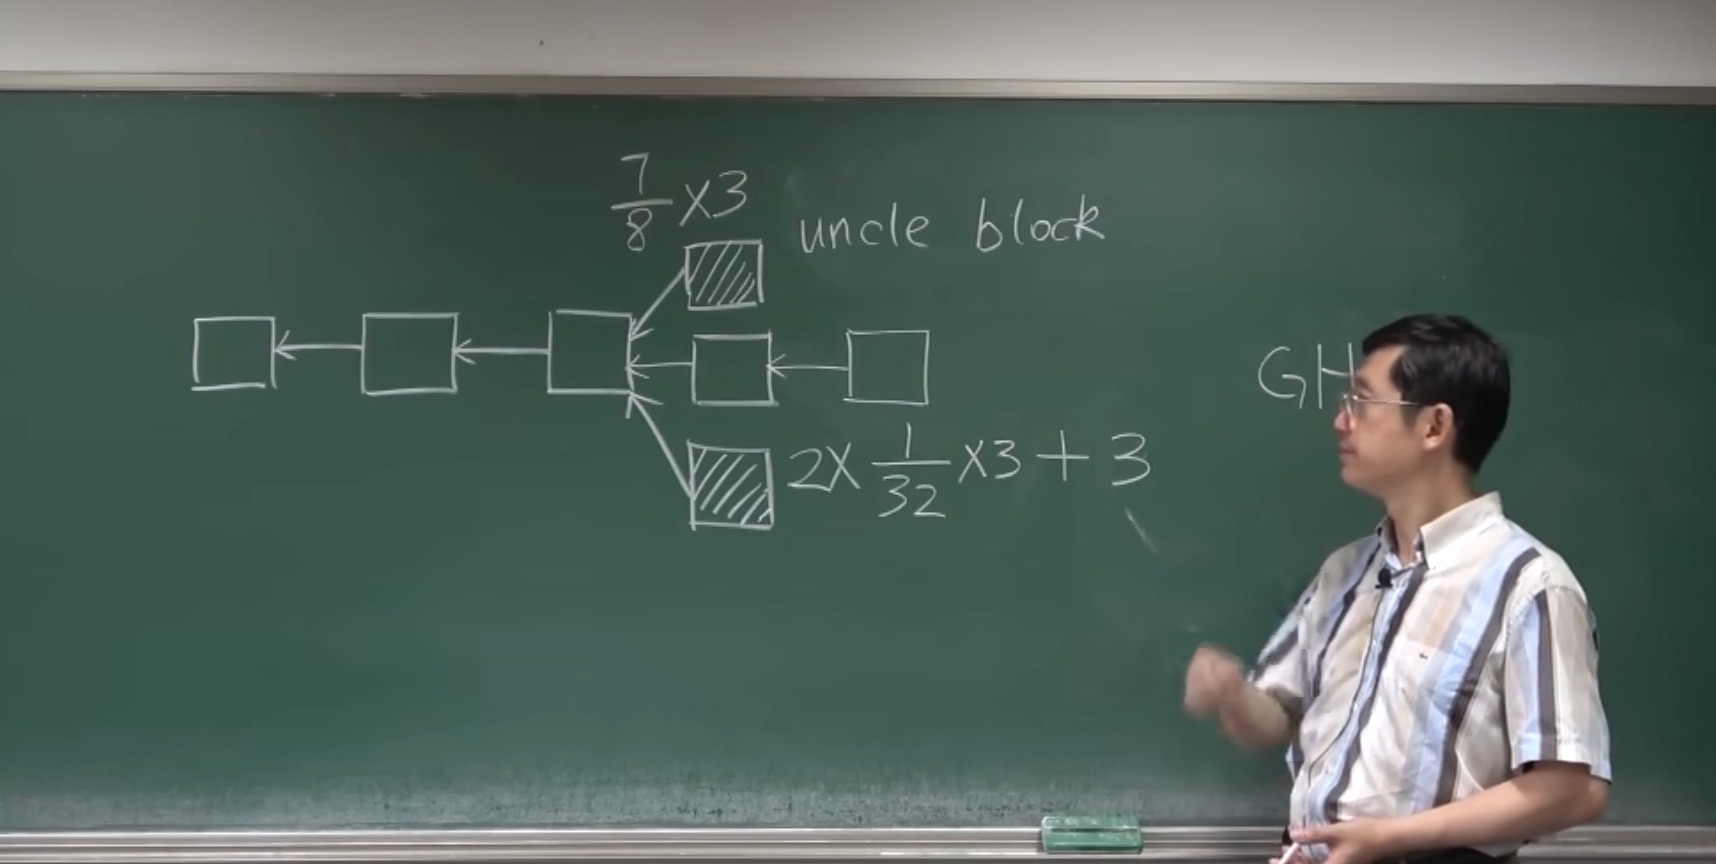 7/8 ×3
uncle block
GH
2× 1/32 ×3 + 3